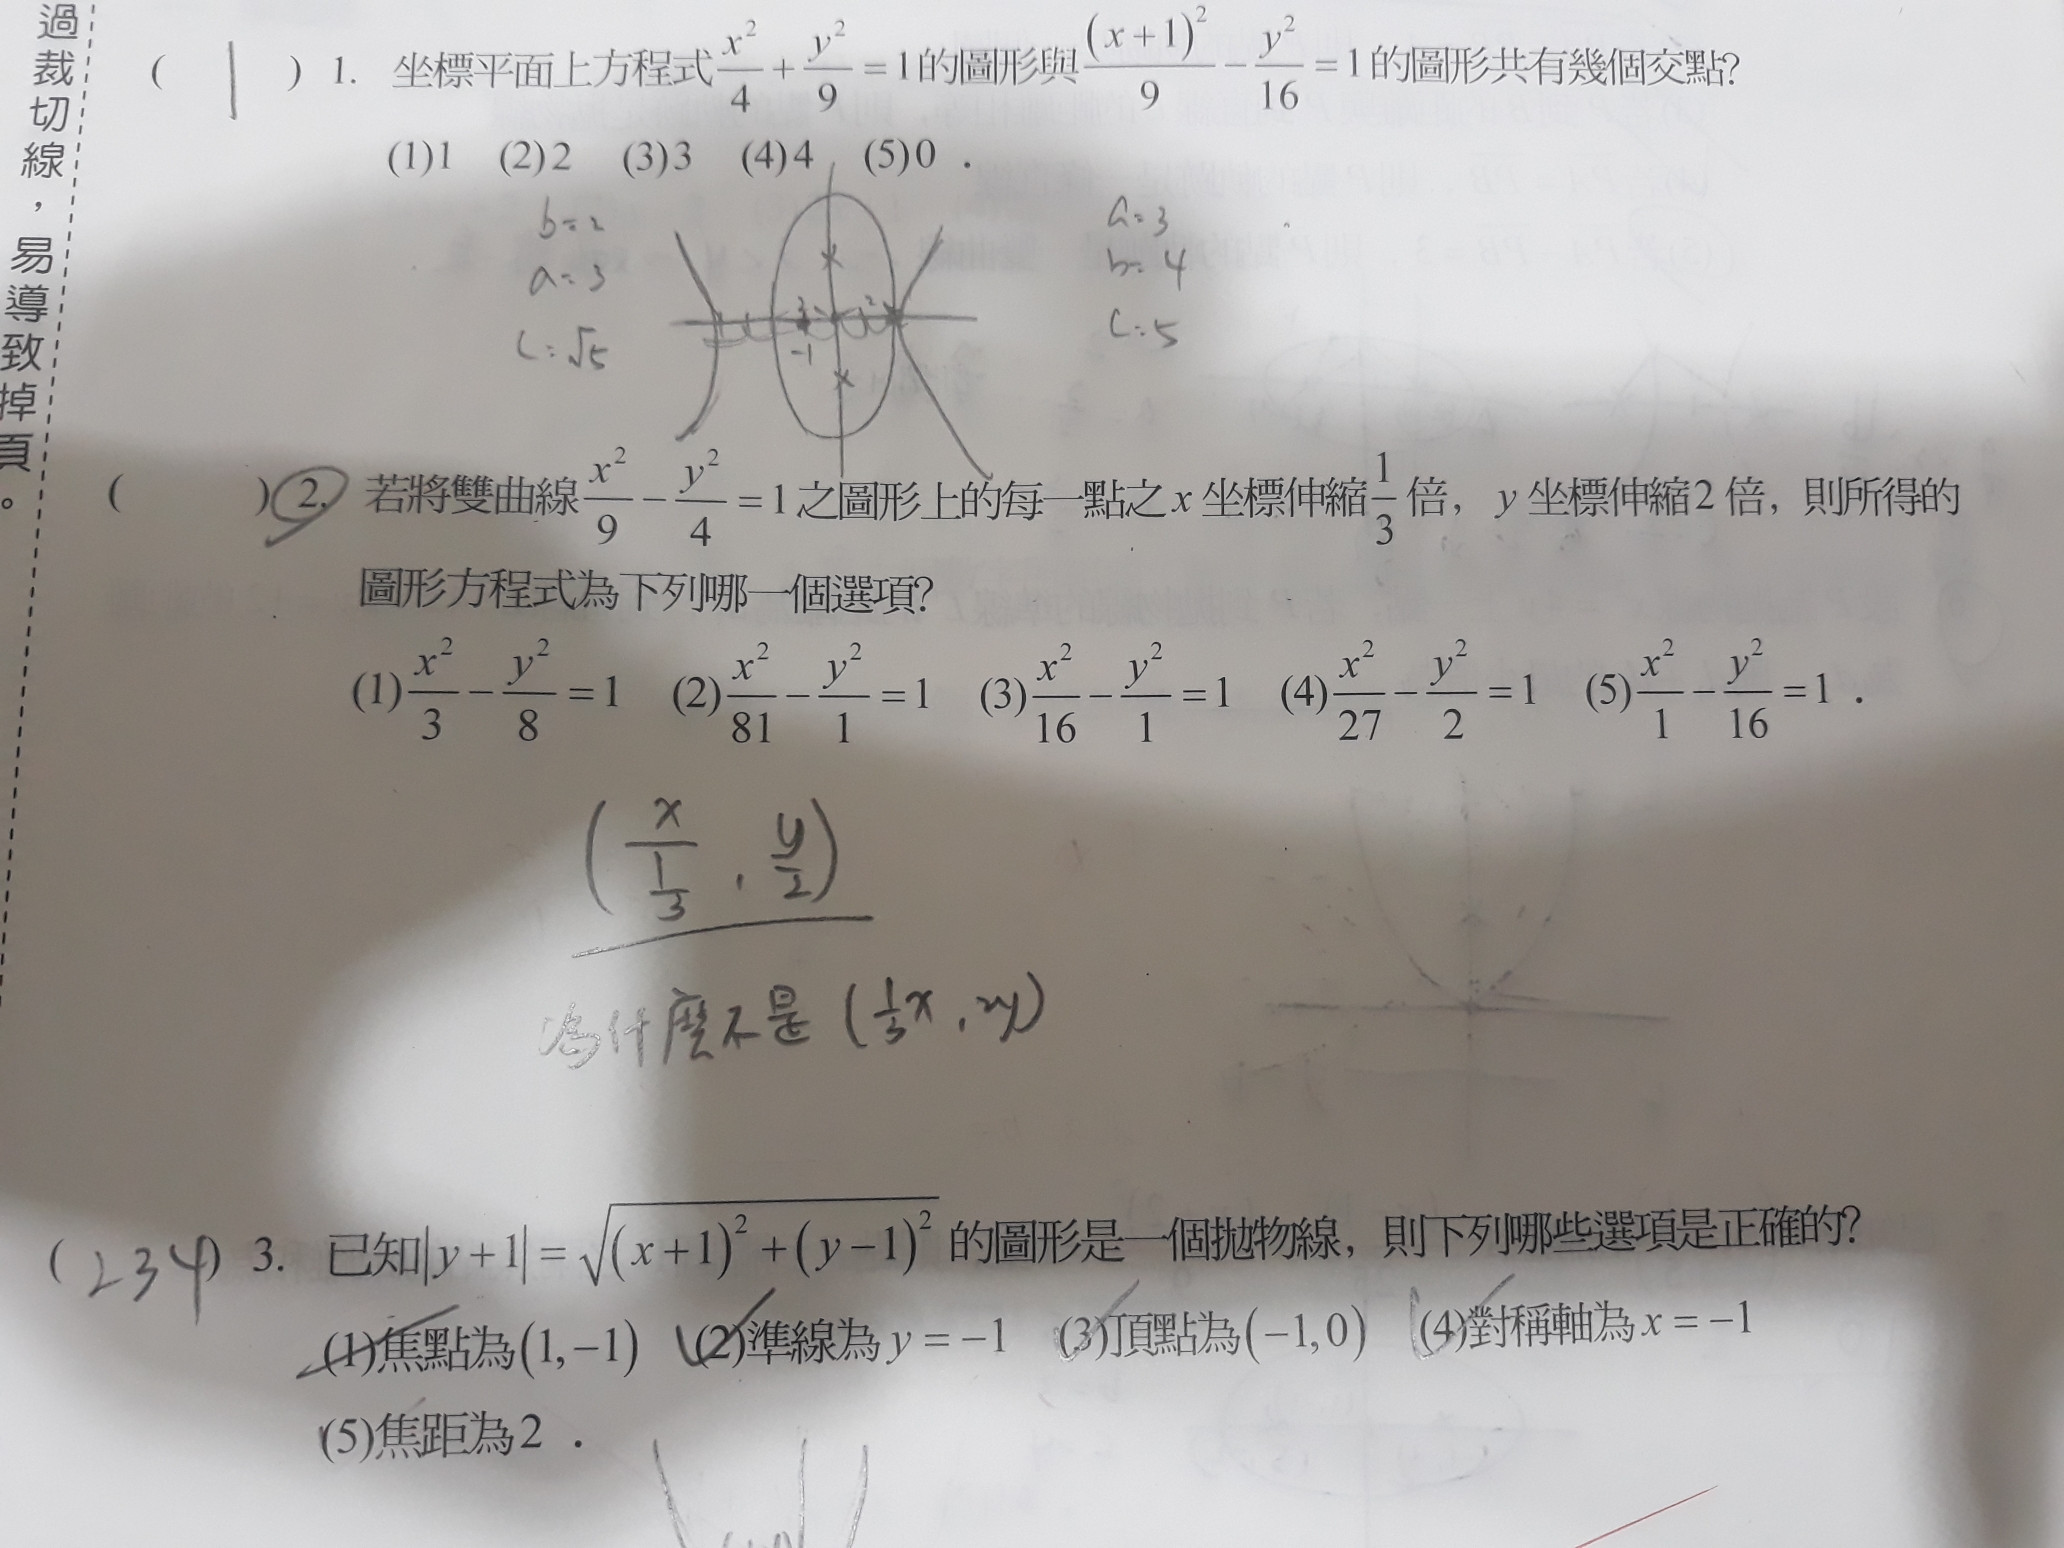 過裁切線，易導致掉頁。
( 1 ) 1. 坐標平面上方程式 x²/4 + y²/9 = 1 的圖形與 (x+1)²/9 − y²/16 = 1 的圖形共有幾個交點?
(1)1 (2)2 (3)3 (4)4 (5)0 .
b=2
a=3
c=√5
2
-1
a=3
b=4
c=5
( ) 2. 若將雙曲線 x²/9 − y²/4 = 1 之圖形上的每一點之 x 坐標伸縮 1/3 倍，y 坐標伸縮 2 倍，則所得的
圖形方程式為下列哪一個選項?
(1) x²/3 − y²/8 = 1 (2) x²/81 − y²/1 = 1 (3) x²/16 − y²/1 = 1 (4) x²/27 − y²/2 = 1 (5) x²/1 − y²/16 = 1 .
(x/(1/3) , y/2)
為什麼不是 (1/3 x , 2y)
( 234 ) 3. 已知 |y+1| = √((x+1)² + (y−1)²) 的圖形是一個拋物線，則下列哪些選項是正確的?
(1)焦點為(1,−1) (2)準線為 y = −1 (3)頂點為(−1,0) (4)對稱軸為 x = −1
(5)焦距為2 .